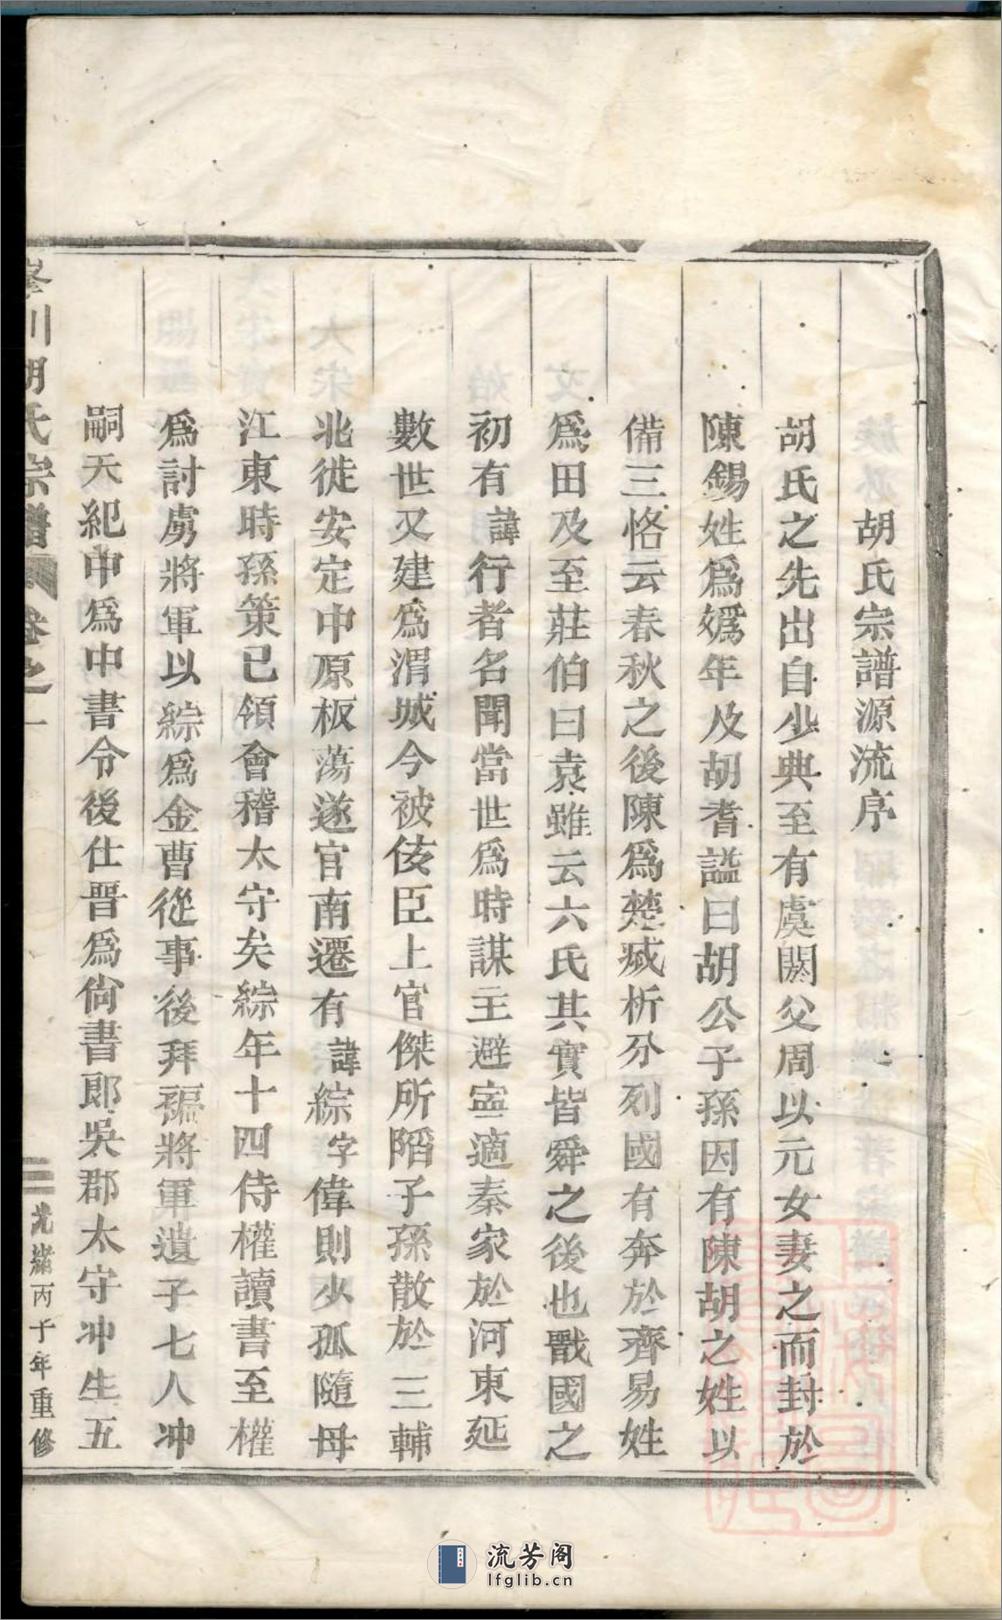 胡氏宗譜源流序
胡氏之先出自少典至有虞閼父周以元女妻之而封於
陳錫姓爲嬀年及胡耆謚曰胡公子孫因有陳胡之姓以
備三恪云春秋之後陳爲楚烕析分列國有奔於齊易姓
爲田及至莊伯曰袁雖云六氏其實皆舜之後也戰國之
初有諱行者名聞當世爲時謀主避寍適秦家於河東延
數世又建爲渭城今被侫臣上官傑所陷子孫散於三輔
北徙安定中原板蕩遂官南遷有諱綜字偉則少孤隨母
江東時孫策已領會稽太守矣綜年十四侍權讀書至權
爲討虜將軍以綜爲金曹從事後拜將軍遺子七人冲
嗣天紀中爲中書令後仕晋爲尙書郎吳郡太守冲生五
川胡氏宗譜 卷之一
二 光緒丙子年重修
流芳阁
lfglib.cn